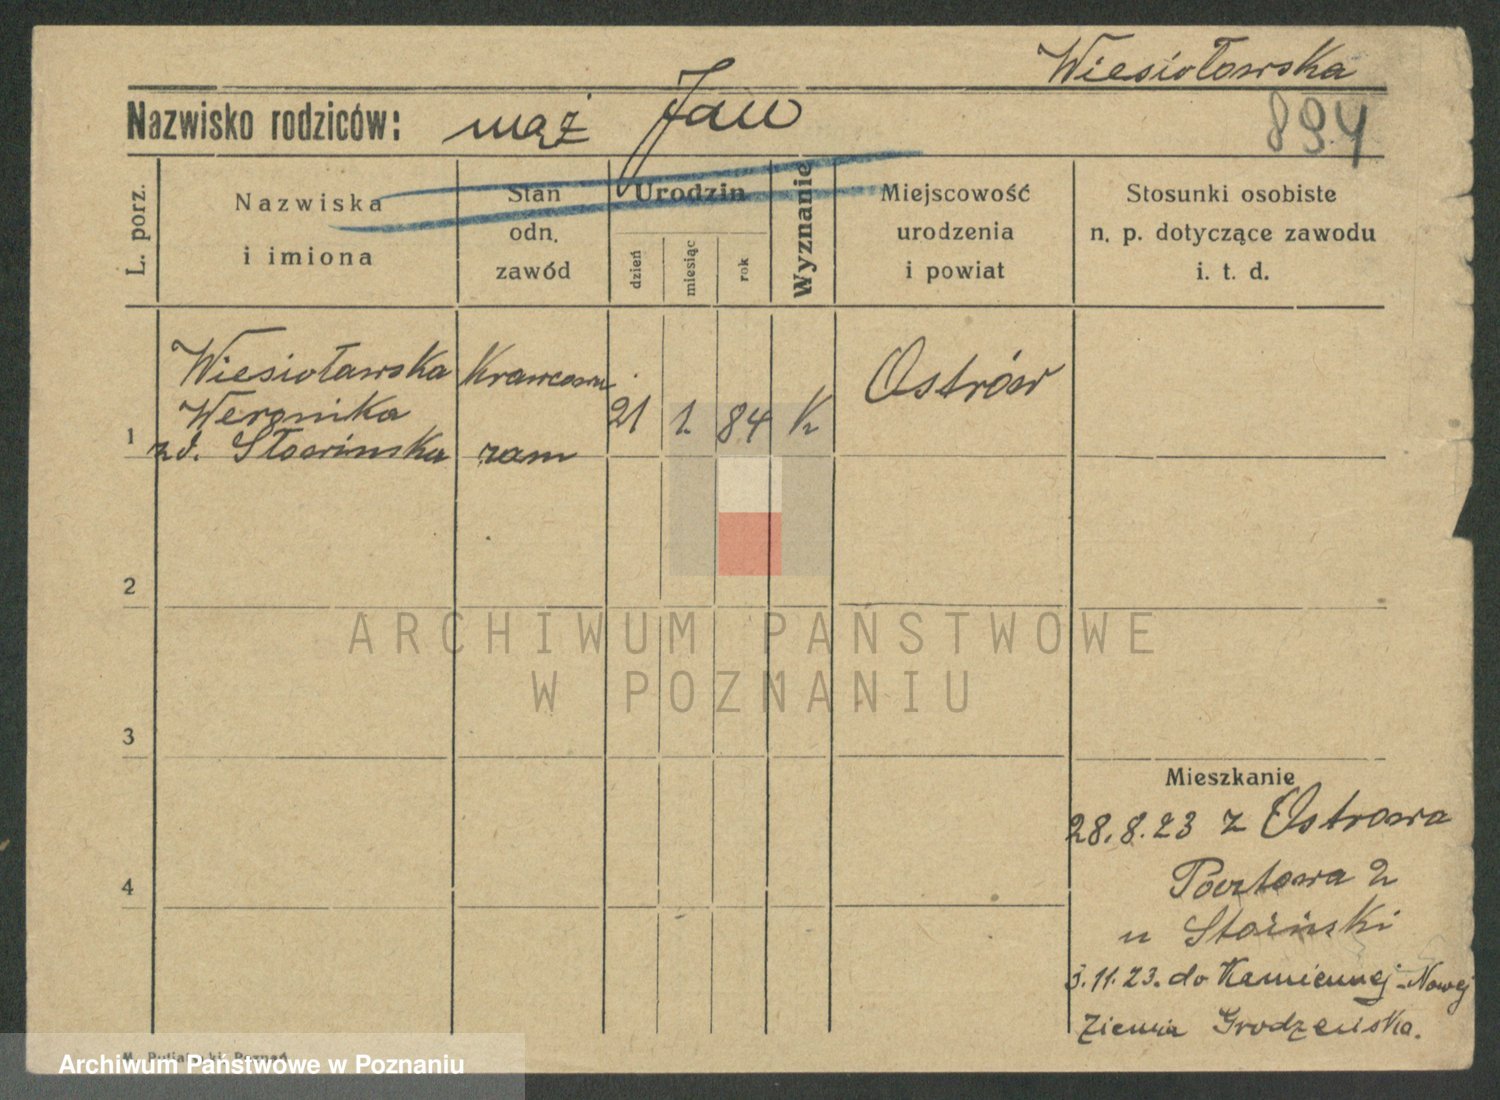 Wiesiołowska
Nazwisko rodziców: mąż Jan
894
L. porz.
Nazwiska
i imiona
Stan
odn.
zawód
Urodzin
dzień
miesiąc
rok
Wyznanie
Miejscowość
urodzenia
i powiat
Stosunki osobiste
n. p. dotyczące zawodu
i. t. d.
1
Wiesioławska Krawcowa 21 1. 84 K Ostrów
Weronika
zd. zam
2
3
4
ARCHIWUM PAŃSTWOWE
W POZNANIU
Mieszkanie
28.8.23 z Ostrowa
Pocztowa 2
u
3.11.23. do Kamiennej-Nowej
Ziemia Grodzeńska.
Poznań
Archiwum Państwowe w Poznaniu